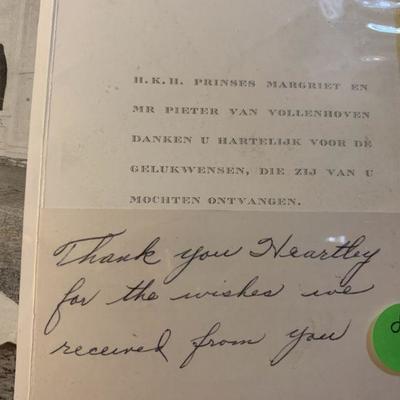 H.K.H. PRINSES MARGRIET EN
MR PIETER VAN VOLLENHOVEN
DANKEN U HARTELIJK VOOR DE
GELUKWENSEN, DIE ZIJ VAN U
MOCHTEN ONTVANGEN.
Thank you Heartley
for the wishes we
received from you